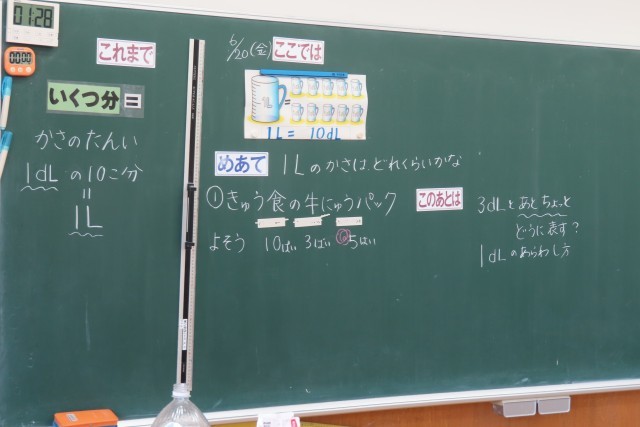 01:28
00:00
これまで
いくつ分=
かさのたんい
1dLの10こ分
=
1L
6/20(金)ここでは
1L
=
1L = 10dL
めあて 1Lのかさは、どれくらいかな
①きゅう食の牛にゅうパック
よそう 10ぱい 3ばい 5はい
このあとは
3dLとあとちょっと
どうに表す?
1dLのあらわし方